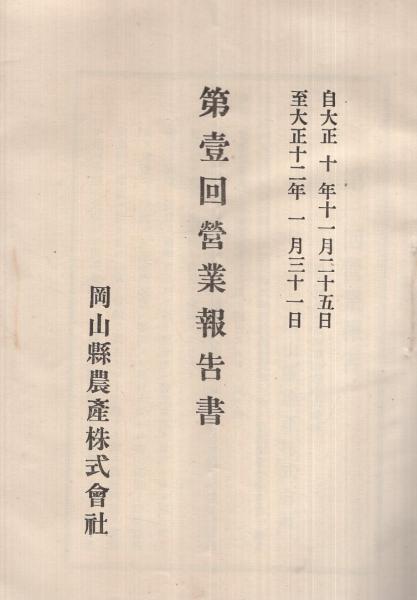 自大正十年十一月二十五日
至大正十二年一月三十一日
第壹回營業報告書
岡山縣農產株式會社